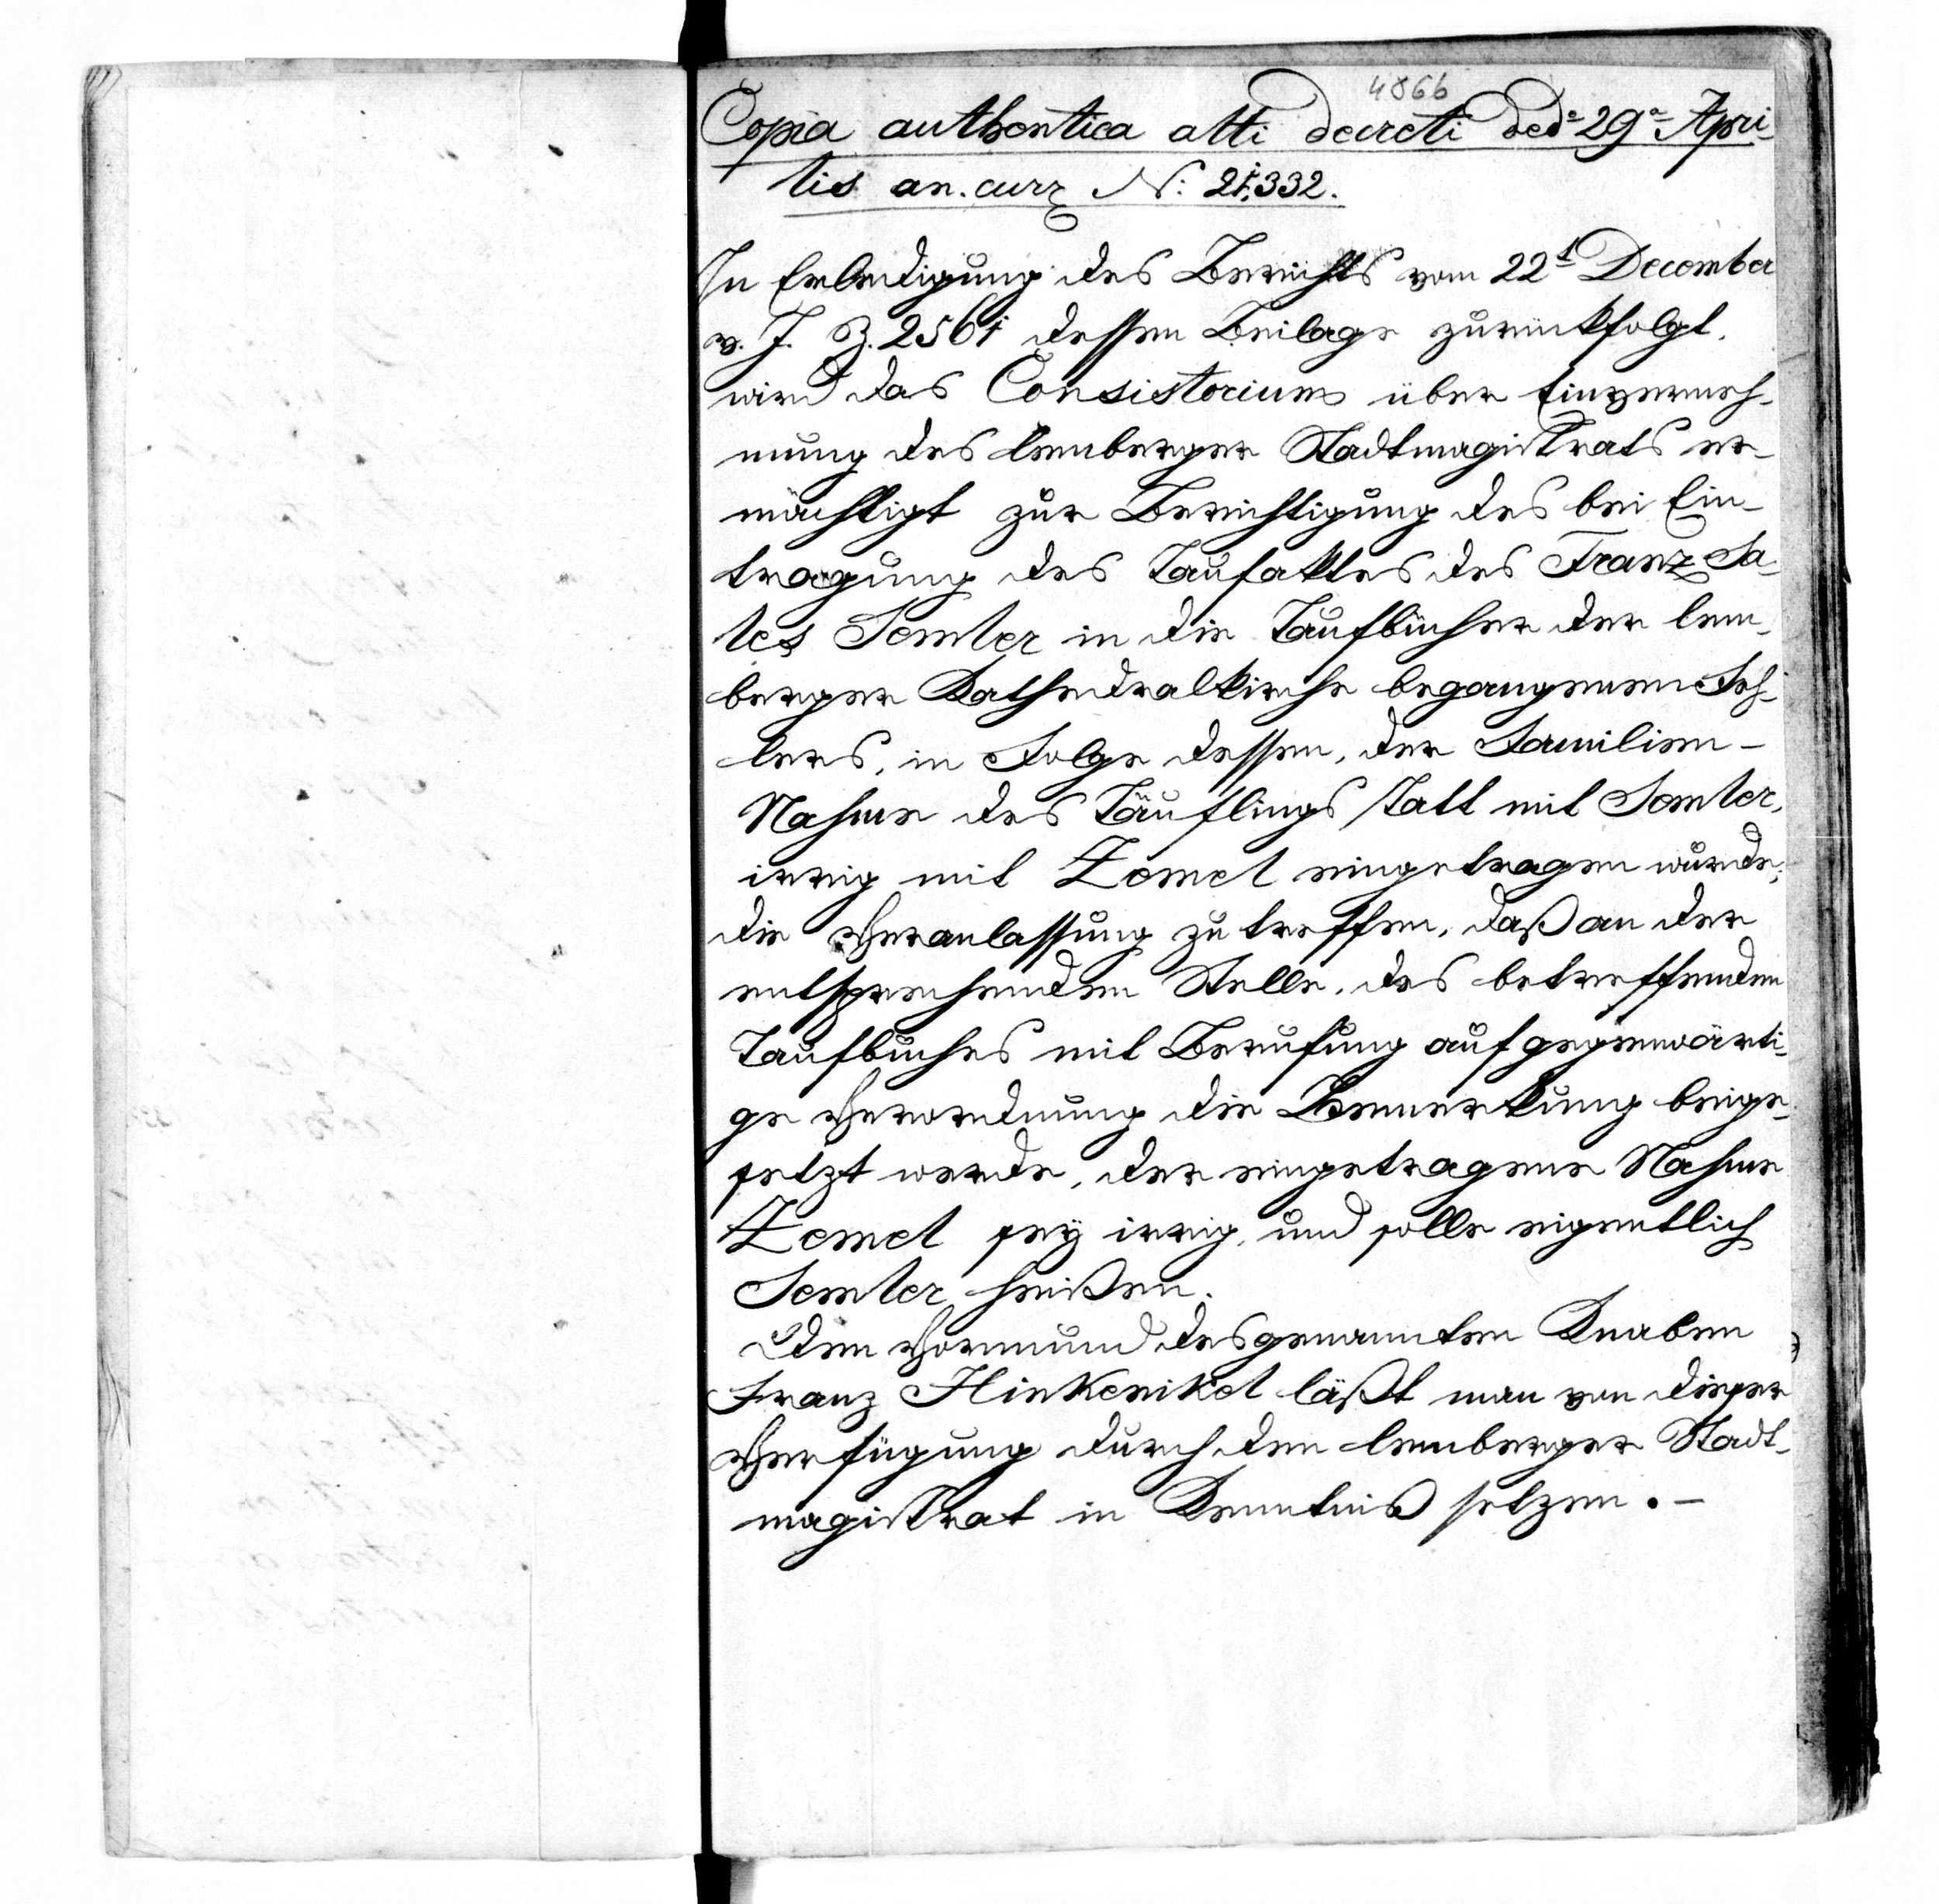 4866
Copia authentica atti decreti ded° 29ª Apri-
lis an. curr N: 21,332.
In Erledigung des Berichts vom 22t December
v. J. Z. 2561 dessen Beilage zurückfolgt,
wird das Consistorium über Einverneh-
mung des lemberger Stadtmagistrats er-
mächtigt zur Berichtigung des bei Ein-
tragung des Taufaktes des Franz Sa-
les Semler in die Taufbücher der lem-
berger Kathedralkirche begangenen Feh-
lers, in Folge dessen, der Familien-
Nahme des Täuflings statt mit Semler,
irrig mit Zemel eingetragen wurde;
die Veranlassung zu treffen, daß an der
entsprechenden Stelle, des betreffenden
Taufbuches mit Berufung auf gegenwärti-
ge Verordnung die Bemerkung beige-
setzt werde, der eingetragene Nahme
Zemel sey irrig, und solle eigentlich
Semler heißen.
Den Vormund des genannten Knaben
Franz Hinkenikel läßt man von dieser
Verfügung durch den lemberger Stadt-
magistrat in Kenntniß setzen.-